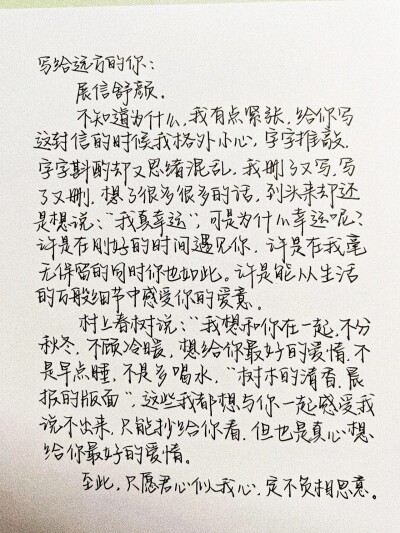 写给远方的你：
展信舒颜.
不知道为什么,我有点紧张,给你写
这封信的时候我格外小心,字字推敲
字字斟酌却又思绪混乱,我删了又写,写
了又删,想了很多很多的话,到头来却还
是想说:"我真幸运",可是为什么幸运呢?
许是在刚好的时间遇见你,许是在我毫
无保留的同时你也如此。许是能从生活
的百般细节中感受你的爱意。
村上春树说:"我想和你在一起,不分
秋冬,不顾冷暖,想给你最好的爱情,不
是早点睡,不是多喝水,"树木的清香,晨
报的版面",这些我都想与你一起感受我
说不出来,只能抄给你看,但也是真心想
给你最好的爱情。
至此,只愿君心似我心,定不负相思意。